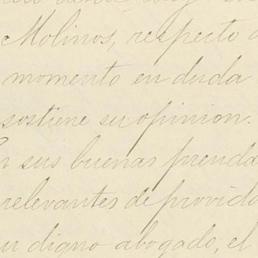 Molinos, respecto
momento en duda
sostiene su opinion.
sus buenas prenda
relevantes de provida
su digno abogado, el